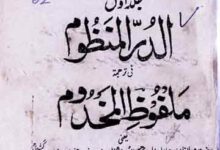 جلد اول
الدر المنظوم
فی ترجمۃ
ملفوظ المخدوم
یعنی